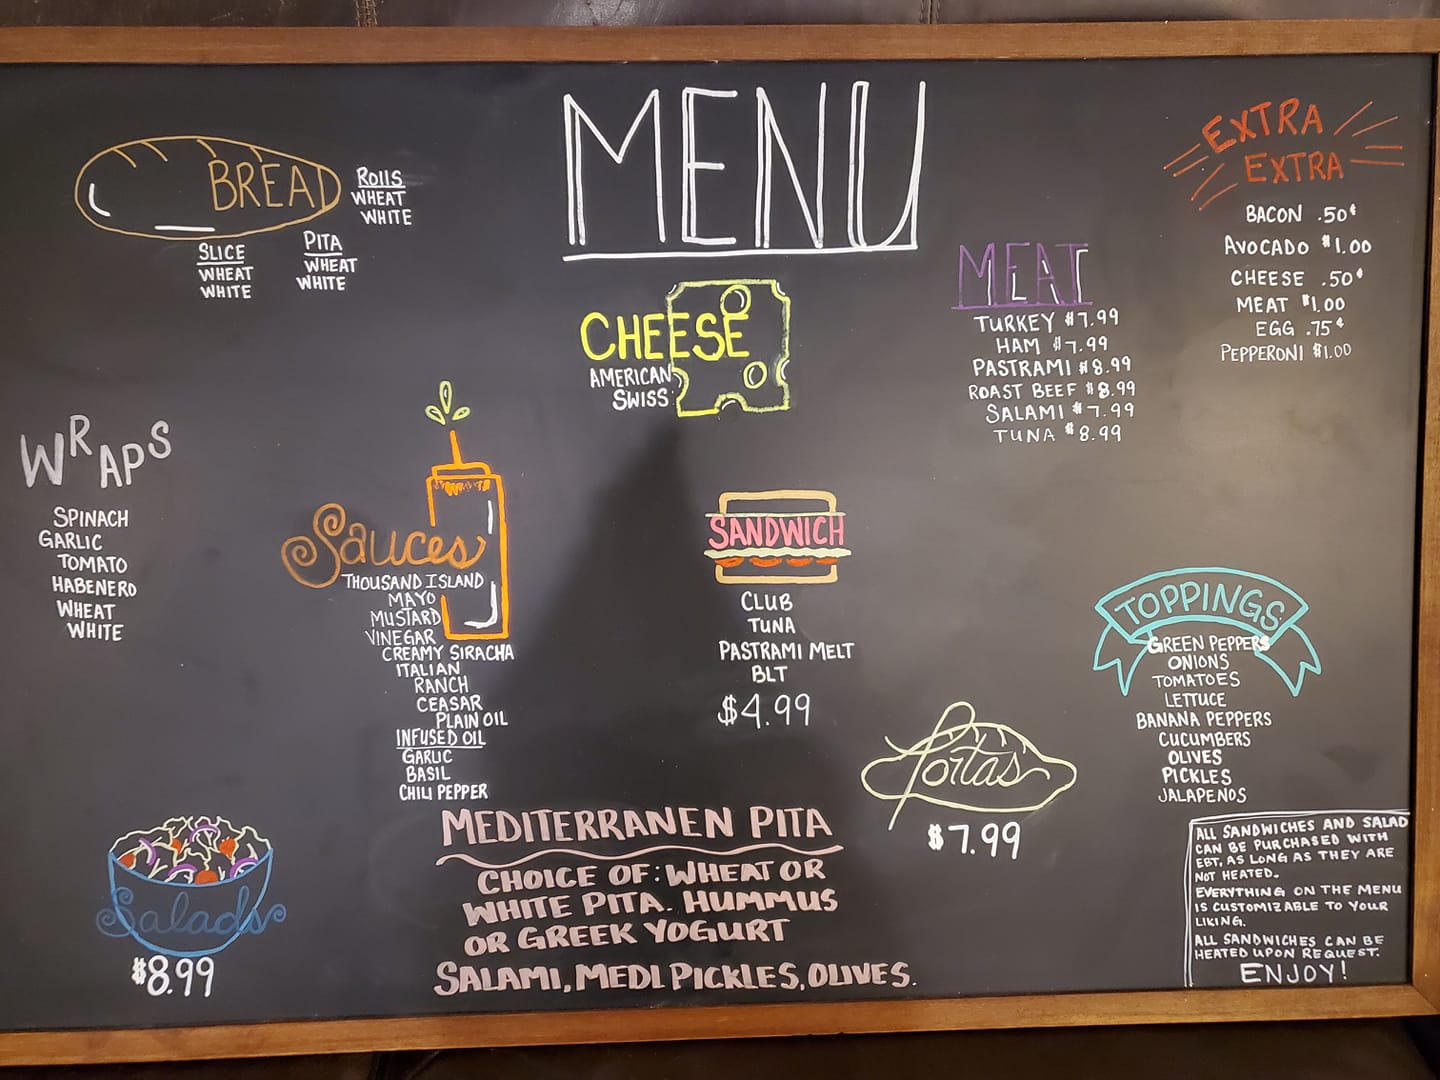 MENU
BREAD
Rolls
WHEAT
WHITE
SLICE
WHEAT
WHITE
PITA
WHEAT
WHITE
CHEESE
AMERICAN
SWISS
MEAT
TURKEY $7.99
HAM $7.99
PASTRAMI $8.99
ROAST BEEF $8.99
SALAMI $7.99
TUNA $8.99
EXTRA
EXTRA
BACON .50¢
AVOCADO $1.00
CHEESE .50¢
MEAT $1.00
EGG .75¢
PEPPERONI $1.00
WRAPS
SPINACH
GARLIC
TOMATO
HABENERO
WHEAT
WHITE
Sauces
THOUSAND ISLAND
MAYO
MUSTARD
VINEGAR
CREAMY SIRACHA
ITALIAN
RANCH
CEASAR
PLAIN OIL
INFUSED OIL
GARLIC
BASIL
CHILI PEPPER
SANDWICH
CLUB
TUNA
PASTRAMI MELT
BLT
$4.99
TOPPINGS
GREEN PEPPERS
ONIONS
TOMATOES
LETTUCE
BANANA PEPPERS
CUCUMBERS
OLIVES
PICKLES
JALAPENOS
Portas
$7.99
Salads
$8.99
MEDITERRANEN PITA
CHOICE OF: WHEAT OR
WHITE PITA. HUMMUS
OR GREEK YOGURT
SALAMI, MEDI PICKLES, OLIVES.
ALL SANDWICHES AND SALAD
CAN BE PURCHASED WITH
EBT, AS LONG AS THEY ARE
NOT HEATED.
EVERYTHING ON THE MENU
IS CUSTOMIZABLE TO YOUR
LIKING.
ALL SANDWICHES CAN BE
HEATED UPON REQUEST.
ENJOY!